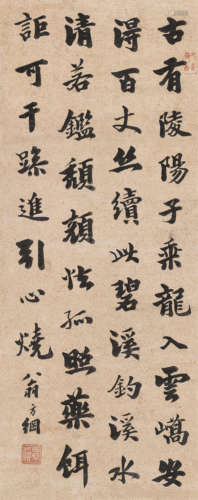 古有陵陽子乘龍入雲嶠安
得百丈絲續此碧溪釣溪水
清若鑑頹顏怯孤照藥餌
詎可干躁進引心燒 翁方綱